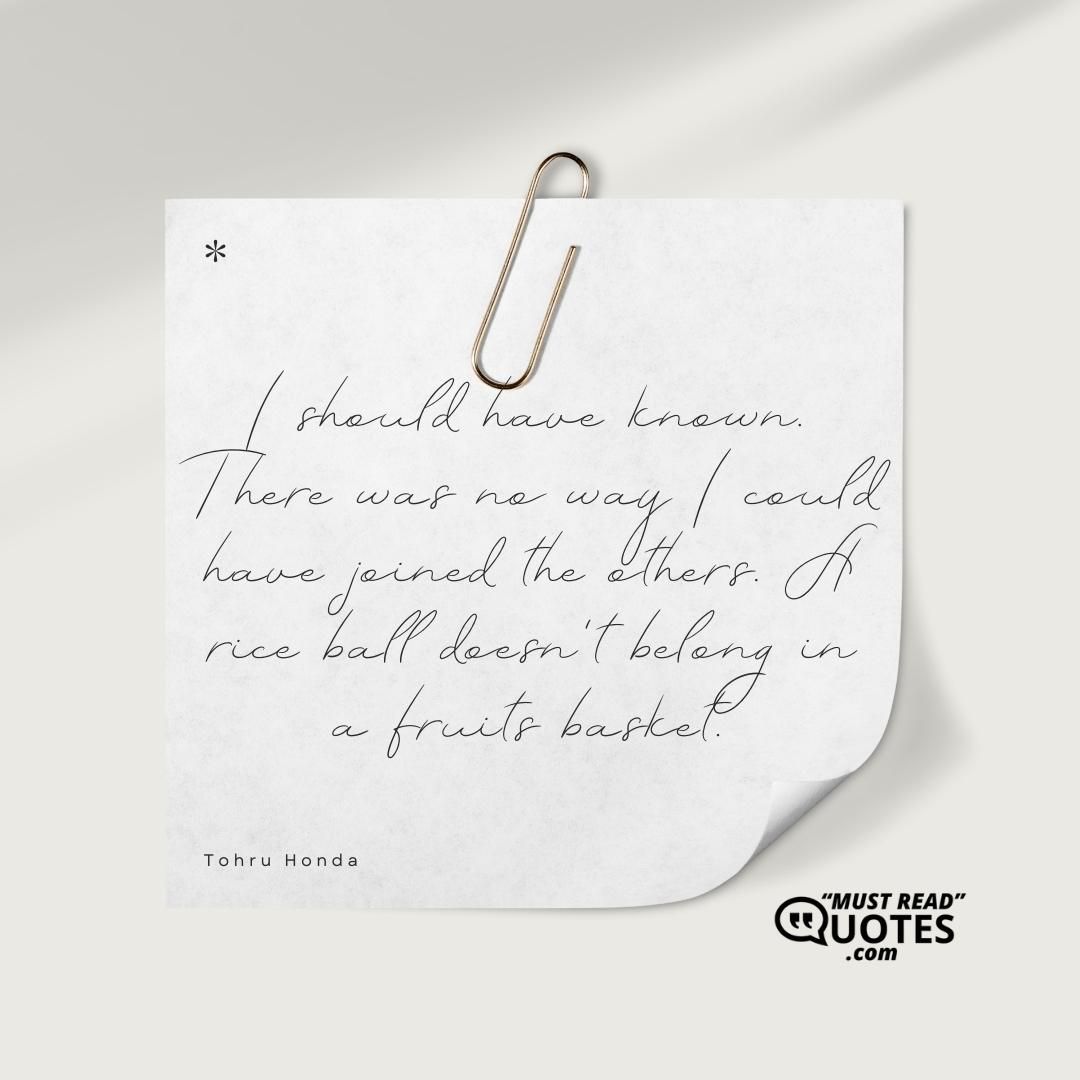 *
I should have known.
There was no way I could
have joined the others. A
rice ball doesn't belong in
a fruits basket.
Tohru Honda
"MUST READ"
QUOTES
.com